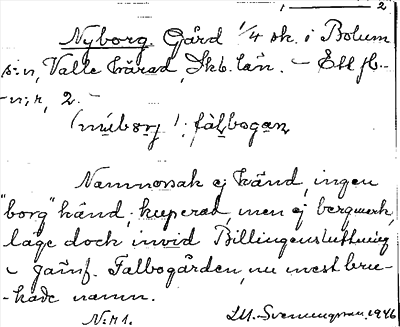 2
Nyborg. Gård 1/4 sk. i Bolum
s:n, Valle härad, Skb. län. – Ett fb.
-n:r, 2. –
(nýborj); fàlbogaŋ
Namnorsak ej känd, ingen
"borg" känd; kuperat, men ej bergmark,
läge doch invid Billingensluttning
– jämf. Falbogården, nu mest bru-
-kade namn.
N:r 1. M. Svenungsson 1946